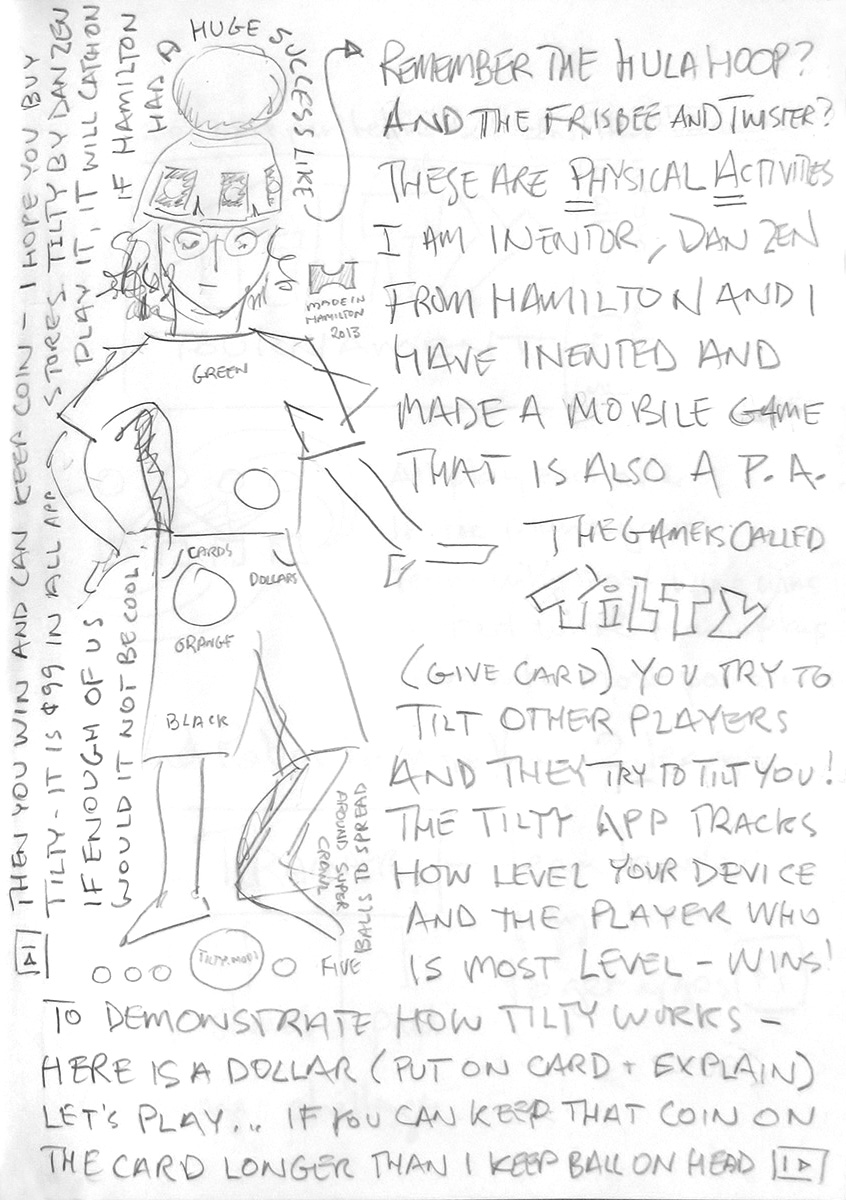 REMEMBER THE HULA HOOP?
AND THE FRISBEE AND TWISTER?
THESE ARE PHYSICAL ACTIVITIES
I AM INENTOR, DAN ZEN
FROM HAMILTON AND I
HAVE INENTED AND
MADE A MOBILE GAME
THAT IS ALSO A P.A.
THE GAME IS CALLED
TILTY
(GIVE CARD) YOU TRY TO
TILT OTHER PLAYERS
AND THEY TRY TO TILT YOU!
THE TILTY APP TRACKS
HOW LEVEL YOUR DEVICE
AND THE PLAYER WHO
IS MOST LEVEL - WINS!
TO DEMONSTRATE HOW TILTY WORKS -
HERE IS A DOLLAR (PUT ON CARD + EXPLAIN)
LET'S PLAY... IF YOU CAN KEEP THAT COIN ON
THE CARD LONGER THAN I KEEP BALL ON HEAD
THEN YOU WIN AND CAN KEEP COIN - I HOPE YOU BUY
TILTY - IT IS $.99 IN ALL APP STORES. TILTY BY DAN ZEN
IF ENOUGH OF US PLAY IT, IT WILL CATCH ON
WOULD IT NOT BE COOL IF HAMILTON
HAD A HUGE SUCCESS LIKE
MADE IN
HAMILTON
2013
GREEN
CARDS
DOLLARS
ORANGE
BLACK
TILTY.MOBI
FIVE
BALLS TO SPREAD
AROUND SUPER
CRAWL